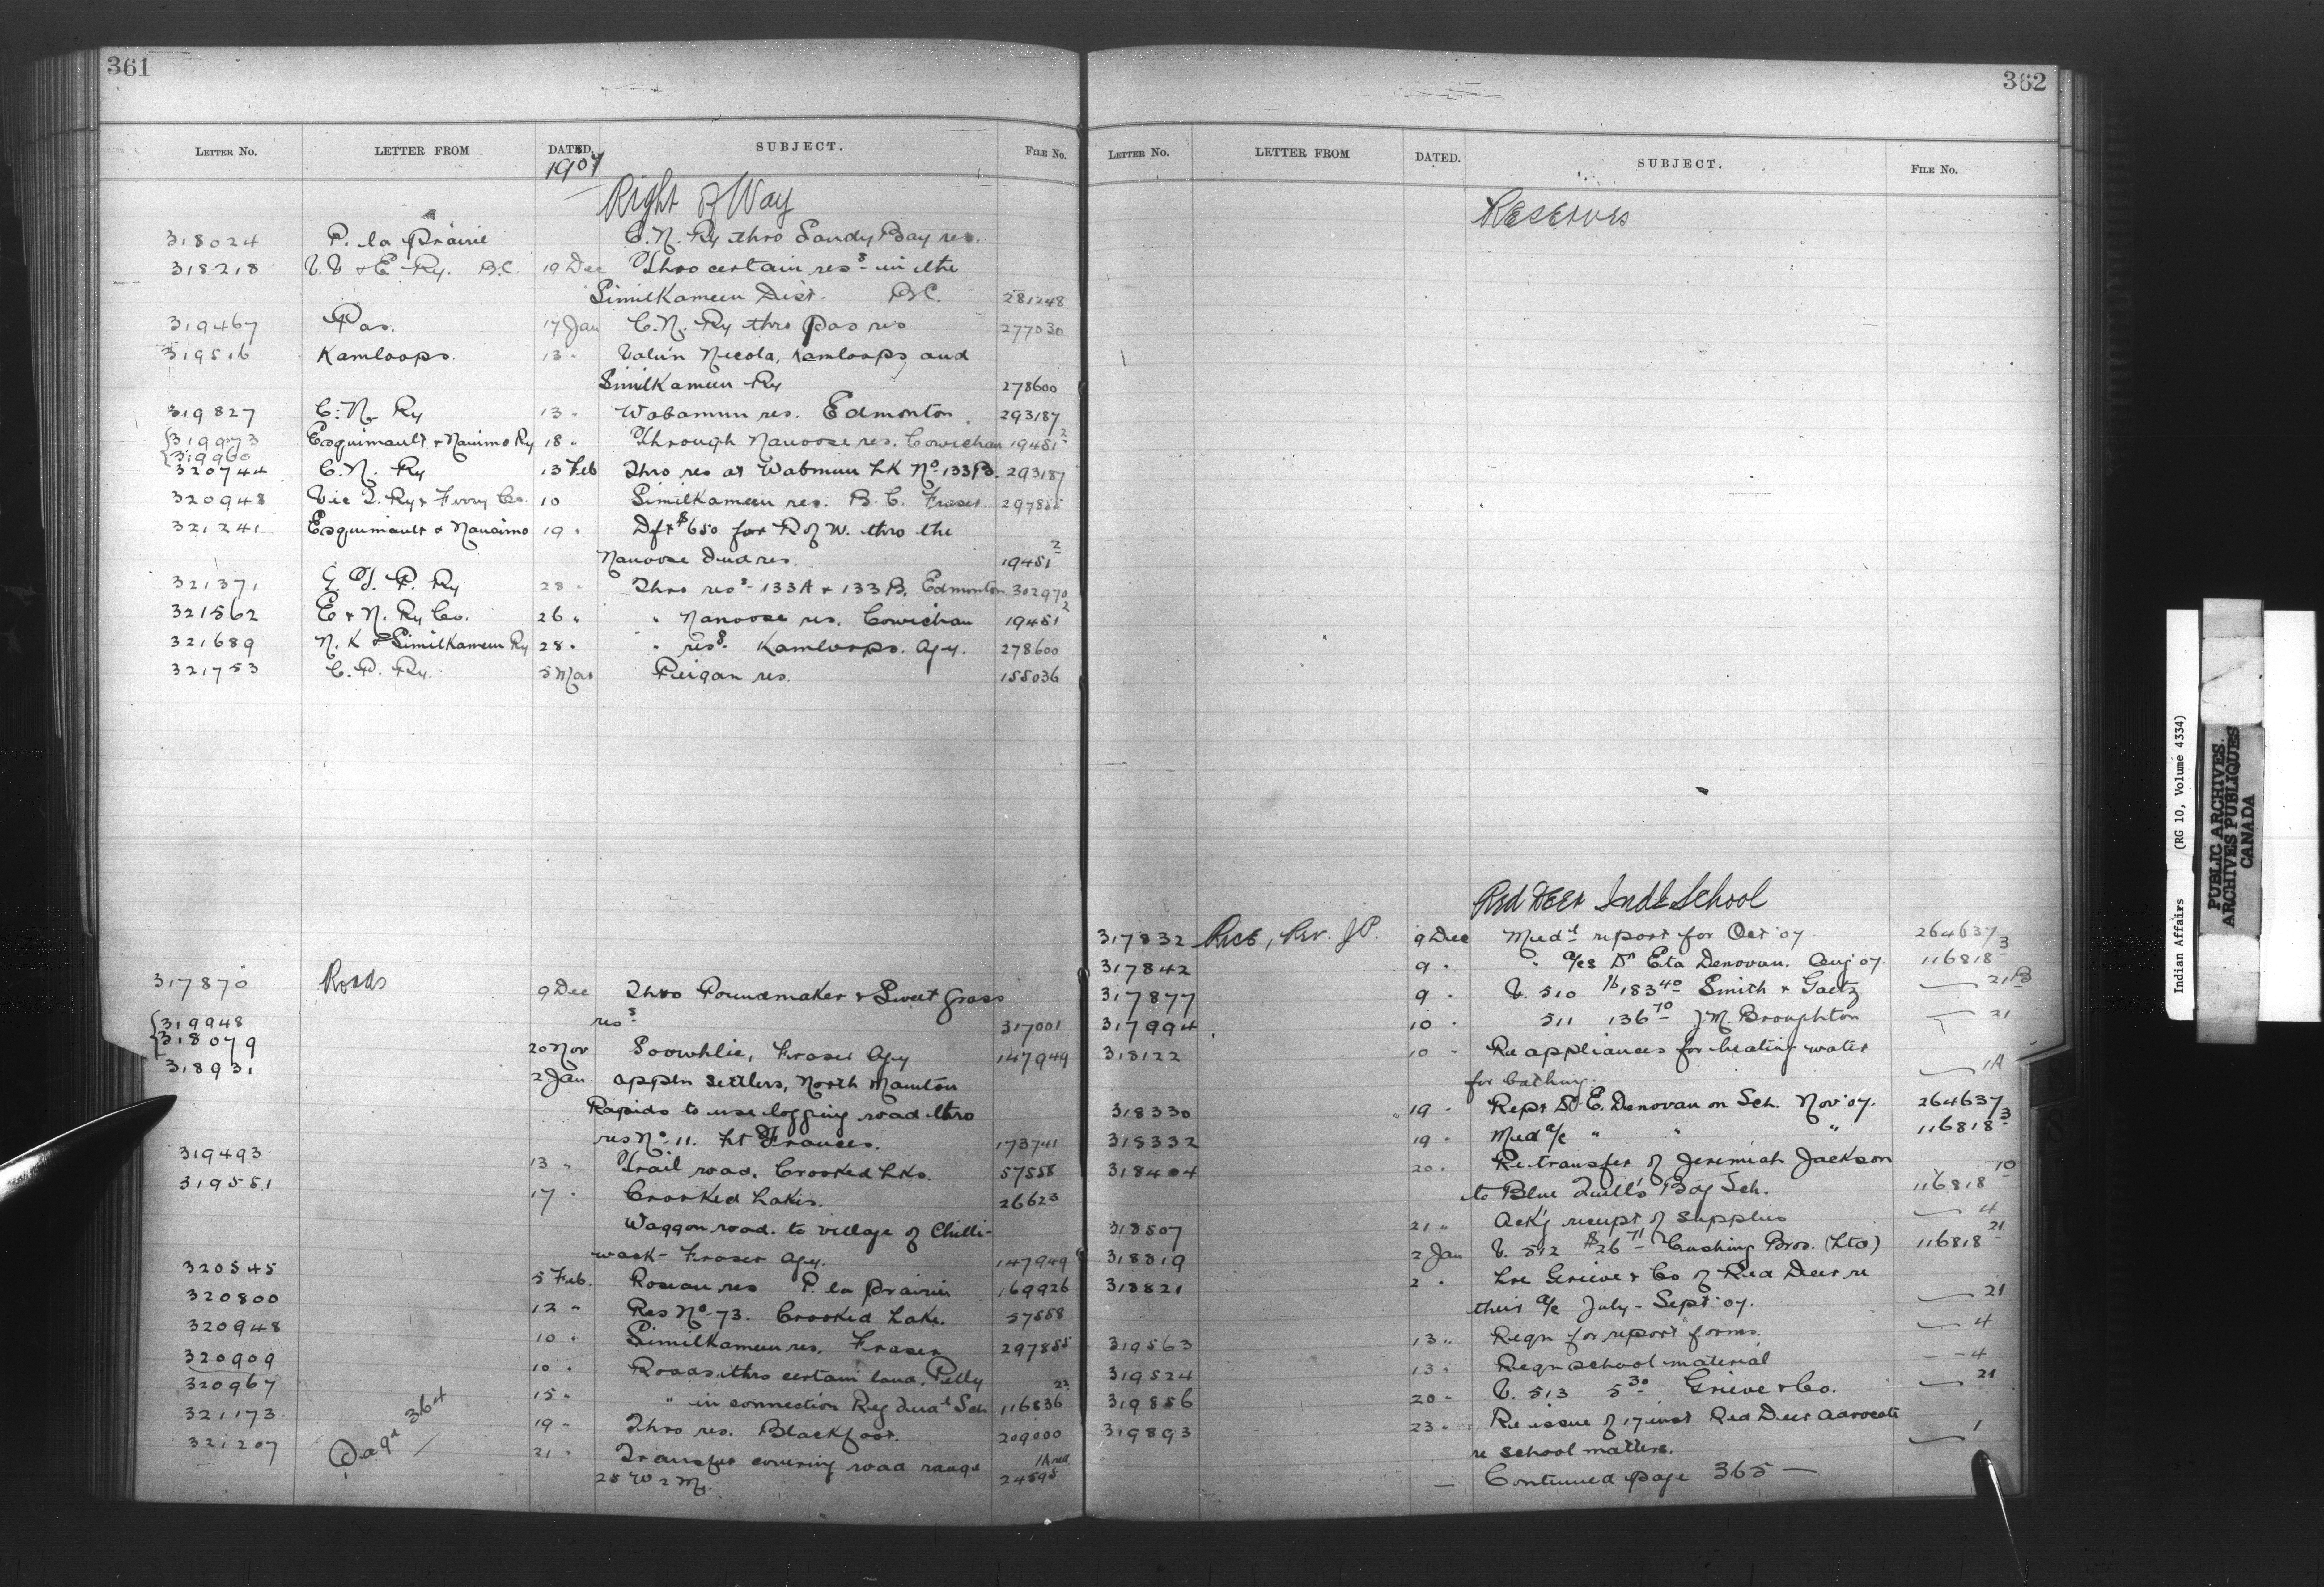 361
LETTER NO. LETTER FROM DATED. SUBJECT. FILE NO.
1907
Right of Way
318024 P. la Prairie C.N. Ry thro Sandy Bay res.
318218 V.V & E Ry. B.C. 19 Dec Thro certain ress in the
Similkameen Dist. B.C. 281248
319467 Pas. 17 Jan C.N. Ry thro Pas res. 277030
319516 Kamloops. 13 " Valu'n Nicola, Kamloops and
Similkameen Ry 278600
319827 C.N. Ry 13 " Wabamun res. Edmonton 293187
319973 Esquimault & Nanimo Ry 18 " Through Nanoose res. Cowichan 19451 2
319960
320744 C.N. Ry 13 Feb Thro res at Wabmun Lk No 133B. 293187
320948 Vic T. Ry & Ferry Co. 10 Similkameen res. B.C. Fraser. 297855
321241 Esquimault & Nanaimo 19 " Dft $650 for R of W. thro the
Nanoose Ind res. 19451 2
321371 G.T.P. Ry 28 " Thro ress 133A & 133B. Edmonton 302970
321562 E & N. Ry Co. 26 " " Nanoose res. Cowichan 19451 2
321689 N.K & Similkameen Ry 28 " " ress. Kamloops. Agy. 278600
321753 C.P. Ry. 5 Mar Peigan res. 155036
317870 Roads 9 Dec Thro Poundmaker & Sweet Grass
ress 317001
319948
318079 20 Nov Soowhlie, Fraser Agy 147949
318931 2 Jan appln settlers, North Manitou
Rapids to use logging road thro
res No. 11. Ft Frances. 173741
319493 13 " Trail road. Crooked Lks. 57558
319551 17 " Crooked Lakes. 26623
Waggon road to village of Chilli-
wack - Fraser Agy. 147949
320545 5 Feb. Roseau res P. la Prairie 169926
320800 12 " Res No. 73. Crooked Lake. 57558
320948 10 " Similkameen res. Fraser 297855
320909 10 " Roads thro certain land, Pelly
320967 15 " " in connection Reg Indl Sch 116836 22
321173 19 " Thro res. Blackfoot. 209000
321207 Page 364 21 " Transfer covering road range
28 W 2 M. 24595
362
LETTER NO. LETTER FROM DATED. SUBJECT. FILE NO.
Reserves
Red Deer Indl School
317832 Rice, Rev. J.P. 9 Dec Medl report for Oct '07. 264637
317842 9 " " a/cs Dr Eta Denovan. Aug '07. 116818 3
317877 9 " V. 510 $183 40 Smith & Gaetz — 21B
317994 10 " 511 136 70 J M Broughton 21
318122 10 " Re appliances for heating water
for bathing. — 1A
318330 19 " Rept Dr E. Denovan on Sch. Nov '07. 264637
318332 19 " Med a/c " " " 116818 3
318404 20 " Re transfer of Jeremiah Jackson
to Blue Quill's Bdg Sch. 116818 10
318507 21 " Ack'g receipt of supplies — 4
318819 2 Jan V. 512 $26 71 Cushing Bros. (Ltd) 116818 21
318821 2 " Lre Grieve & Co of Red Deer re
their a/c July - Sept '07. — 21
319563 13 " Reqn for report forms. — 4
319524 13 " Reqn school material — 4
319856 20 " V. 513 5 30 Grieve & Co. — 21
319893 23 " Re issue of 17 inst Red Deer Advocate
re school matters. — 1
— Continued page 365 —
Indian Affairs (RG 10, Volume 4334)
PUBLIC ARCHIVES
ARCHIVES PUBLIQUES
CANADA